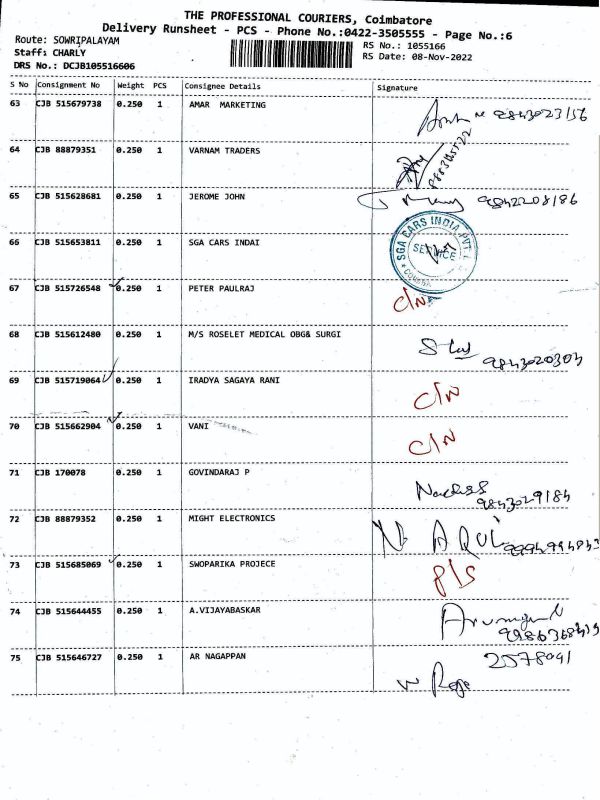 THE PROFESSIONAL COURIERS, Coimbatore
Delivery Runsheet - PCS - Phone No.:0422-3505555 - Page No.:6
Route: SOWRIPALAYAM
RS No.: 1055166
Staff: CHARLY
RS Date: 08-Nov-2022
DRS No.: DCJB105516606
S No Consignment No Weight PCS Consignee Details Signature
63 CJB 515679738 0.250 1 AMAR MARKETING 9843023156
64 CJB 88879351 0.250 1 VARNAM TRADERS
65 CJB 515628681 0.250 1 JEROME JOHN 9842208186
66 CJB 515653811 0.250 1 SGA CARS INDAI
SGA CARS INDIA PVT.
SERVICE
67 CJB 515726548 0.250 1 PETER PAULRAJ C/N
68 CJB 515612480 0.250 1 M/S ROSELET MEDICAL OBG& SURGI
9843020304
69 CJB 515719064 0.250 1 IRADYA SAGAYA RANI C/N
70 CJB 515662904 0.250 1 VANI C/N
71 CJB 170078 0.250 1 GOVINDARAJ P
9843029184
72 CJB 88879352 0.250 1 MIGHT ELECTRONICS
73 CJB 515685069 0.250 1 SWOPARIKA PROJECE P/S
74 CJB 515644455 0.250 1 A.VIJAYABASKAR
75 CJB 515646727 0.250 1 AR NAGAPPAN 2578041